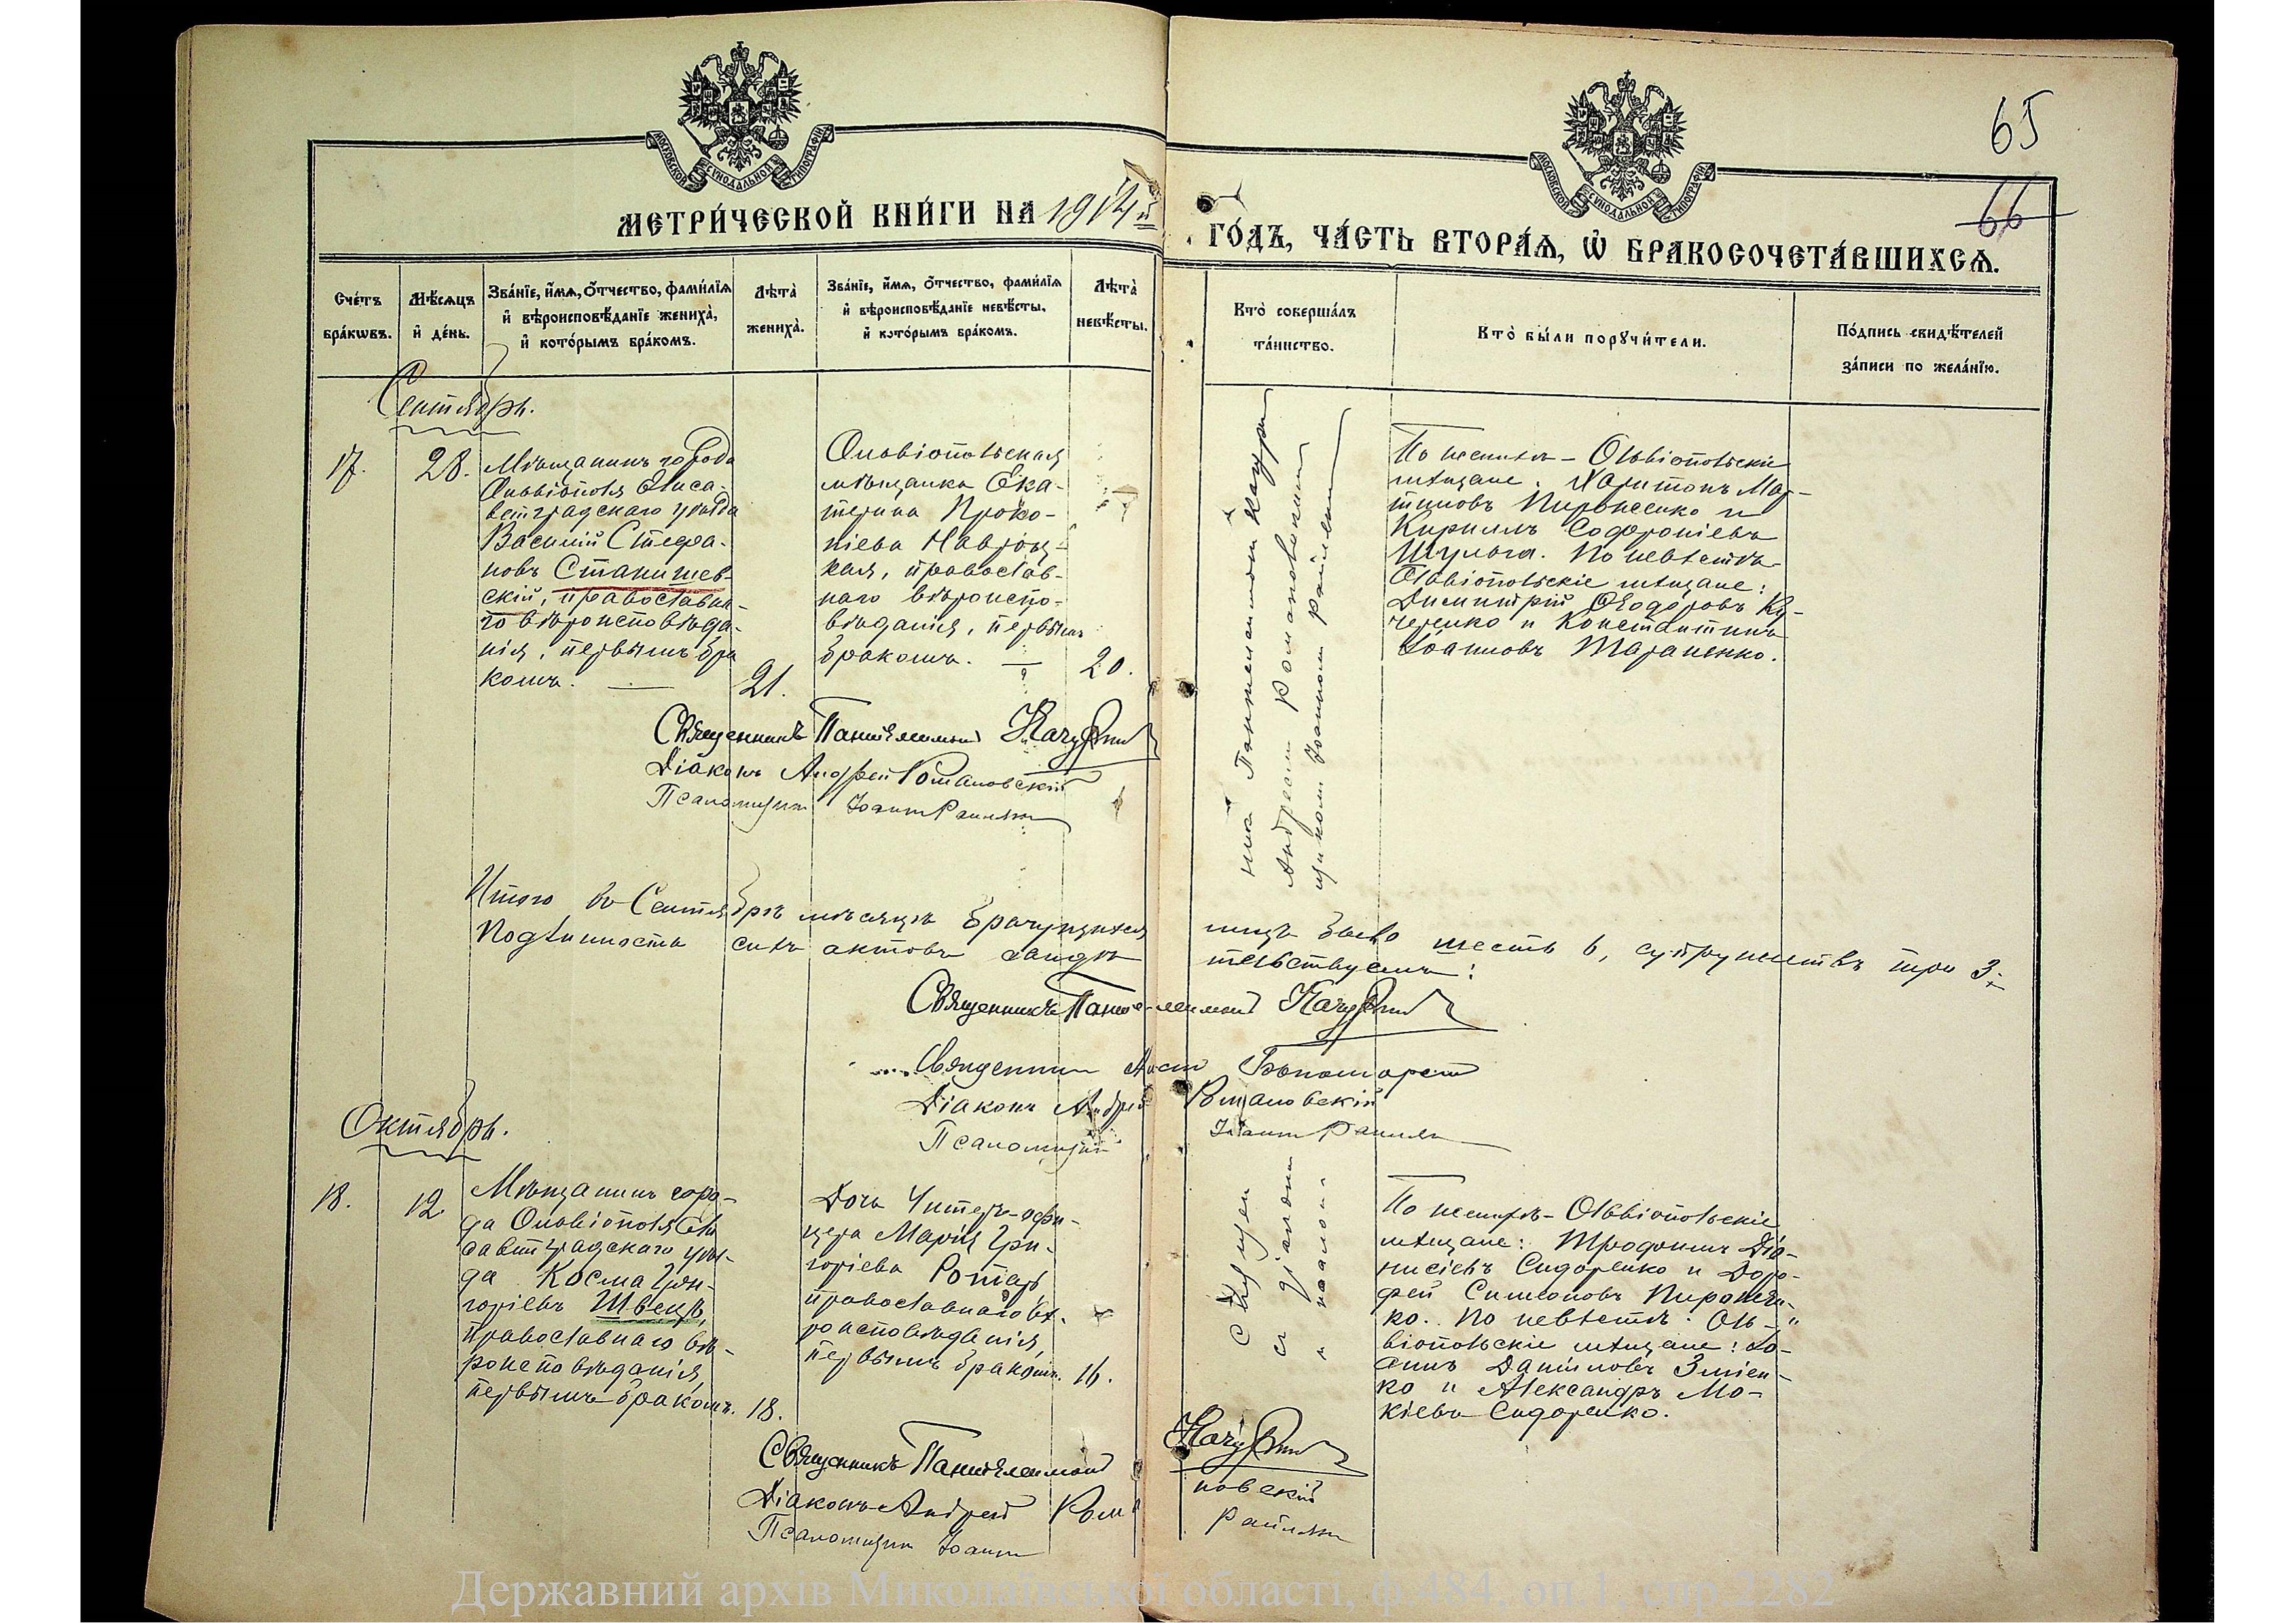 65
66
МОСКОВСКОЙ СѴНОДАЛЬНОЙ ТИПОГРАФІИ
МОСКОВСКОЙ СѴНОДАЛЬНОЙ ТИПОГРАФІИ
МЕТРИ́ЧЕСКОЙ КНИ́ГИ НА 1914й
ГО́ДЪ, ЧА́СТЬ ВТОРА́Ѧ, Ѡ҆ БРАКОСОЧЕТА́ВШИХСѦ.
Сче́тъ
бра́кѡвъ.
Мѣ́сѧцъ
и҆ де́нь.
Зва́нїе, и҆́мѧ, ѻ҆́тчество, фами́лїѧ
и҆ вѣроисповѣ́данїе жениха̀,
и҆ кото́рымъ бра́комъ.
Лѣта̀
жениха̀.
Зва́нїе, и҆́мѧ, ѻ҆́тчество, фами́лїѧ
и҆ вѣроисповѣ́данїе невѣ́сты,
и҆ кото́рымъ бра́комъ.
Лѣта̀
невѣ́сты.
Кто̀ соверша́лъ
та́инство.
Кто̀ бы́ли порꙋчи́тели.
По́дпись свидѣ́телей
за́писи по жела́нїю.
Сентябрь.
17.
28.
Мѣщанинъ города
Ольвіополя Елиса-
ветградскаго уѣзда
Василій Стефа-
новъ Станишев-
скій, православна-
го вѣроисповѣда-
нія, первымъ бра
комъ. —
21.
Ольвіопольская
мѣщанка Ека-
терина Проко-
піева Навроц-
кая, православ-
наго вѣроиспо-
вѣданія, первымъ
бракомъ. —
20.
ник Пантелеимон Качур
Андреем Романовским
щиком Іоанном Раилян
По женихѣ - Ольвіопольскіе
мѣщане: Харитонъ Мар-
тиновъ Пироженко и
Кириллъ Софроніевъ
Шульга. По невѣстѣ-
Ольвіопольскіе мѣщане:
Димитрій Ѳеодоровъ Ку-
черенко и Константинъ
Іоанновъ Тараненко.
Священникъ Пантелеимонъ
Діаконъ Андрей Романовскій
Псаломщик Іоанн Раилян
Итого въ Сентябрѣ мѣсяцѣ брачущихся лицъ было шесть 6, супружествъ три 3.
Подлинность сихъ актовъ свидѣтельствуемъ:
Священникъ Пантелеимонъ
Священник
Діаконъ Андрей Романовскій
Псаломщик Іоанн Раилян
Октябрь.
18.
12.
Мѣщанинъ горо-
да Ольвіополя Ели
саветградскаго уѣз-
да Косма Гри-
горіевъ Швецъ,
православнаго вѣ-
роисповѣданія,
первымъ бракомъ.
18.
Дочь Унтеръ-офи-
цера Марія Гри-
горіева Ротарь
православнаго вѣ-
роисповѣданія,
первымъ бракомъ.
16.
Священ
съ діакон
и псалом
По женихѣ - Ольвіопольскіе
мѣщане: Трофимъ Діо-
нисіевъ Сидоренко и Доро-
фей Симеоновъ Пирожен-
ко. По невѣстѣ: Оль-
віопольскіе мѣщане: Іо-
аннъ Даніиловъ Зміен-
ко и Александръ Мо-
кіевъ Сидоренко.
Священникъ Пантелеимонъ
Діаконъ Андрей Романовскій
Псаломщик Іоанн Раилян
Державний архів Миколаївської області, ф.484, оп.1, спр.2282